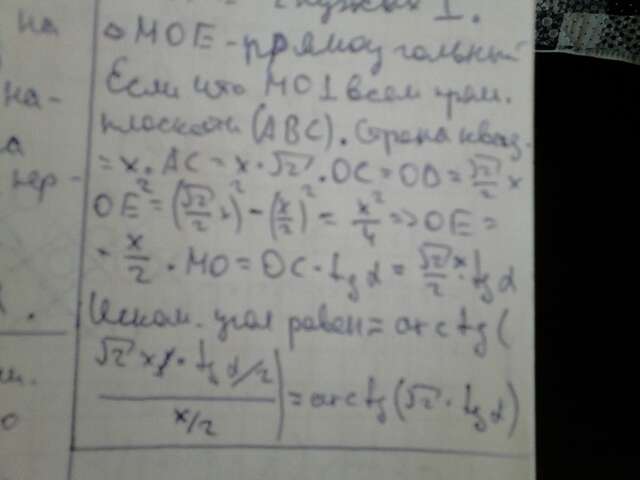 на
△MOE-прямоугольный
Если что MO⊥всем прям.
на-
плоскости (ABC). Сторона квад.
= x. AC = x · √2. OC = OD = √2/2 x
пер-
OE² = (√2/2 x)² - (x/2)² = x²/4 => OE =
= x/2. MO = OC · tg α = √2/2 x · tg α
Иском. угол равен = arctg (
√2 x · tg α/2
x/2
) = arctg (√2 · tg α)